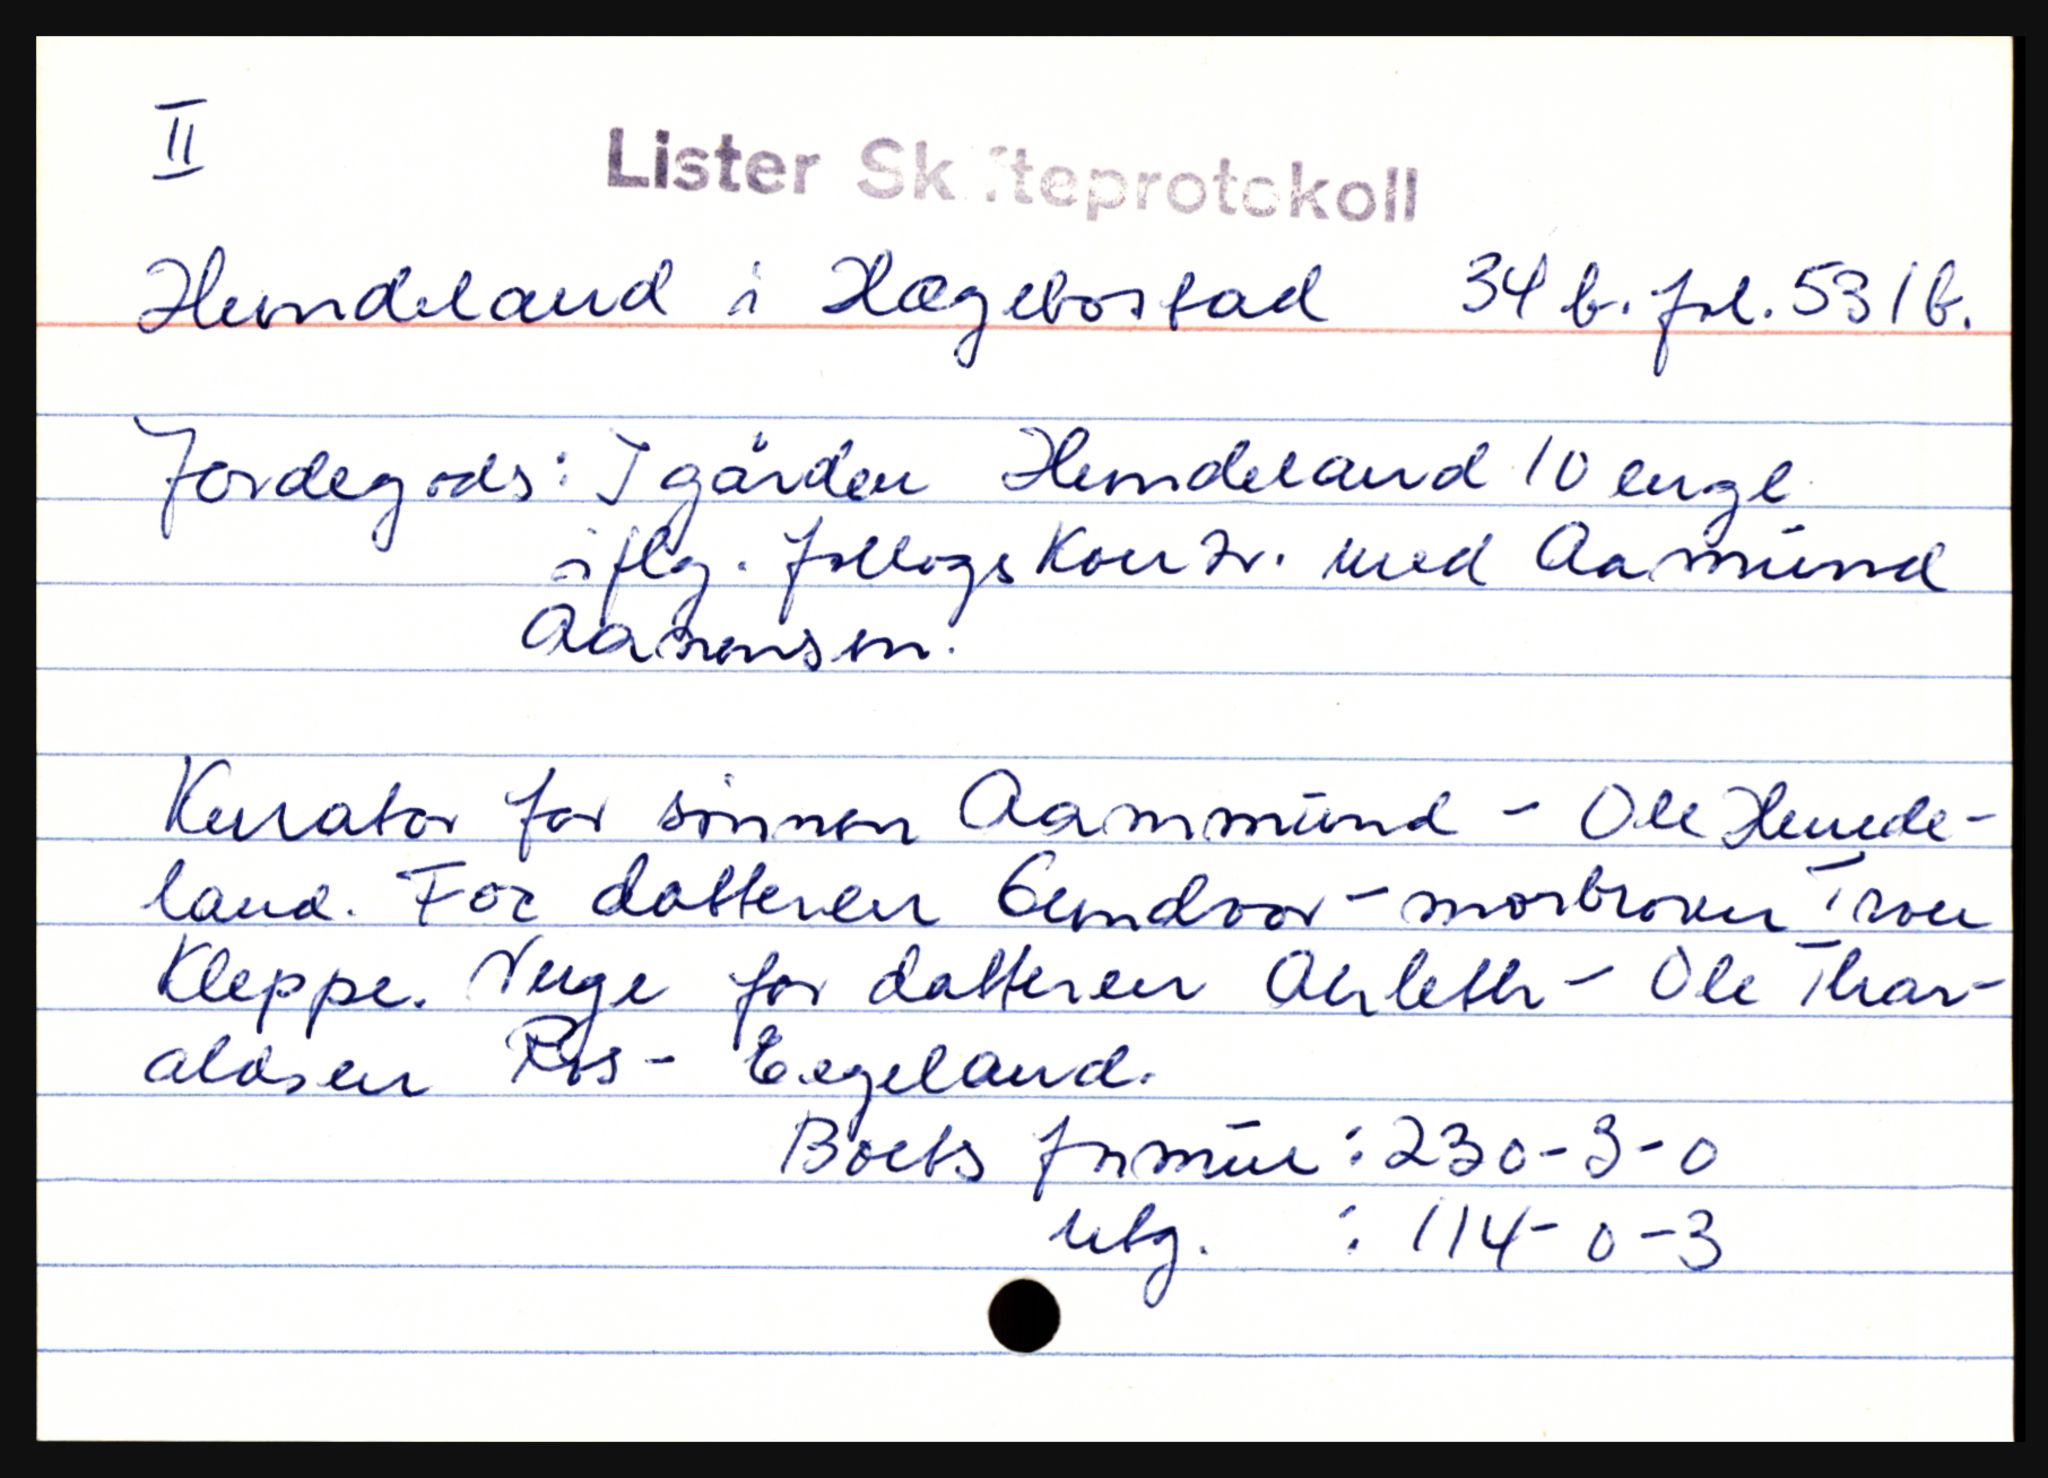 II
Lister Skifteprotokoll
Hundeland i Hægebostad 34 b. fol. 531 b.
Jordegods: I gården Hundeland 10 engl.
iflg. follogskontr. med Aamund
Aanensen.
Kurator for sönnen Aammund - Ole Hunde-
land. For datteren Gundvor - morbroren Tron
Kleppe. Verge for datteren Ahleth - Ole Thor-
aldsen Røs - Eegeland.
Boets formue : 230-3-0
utg. : 114-0-3